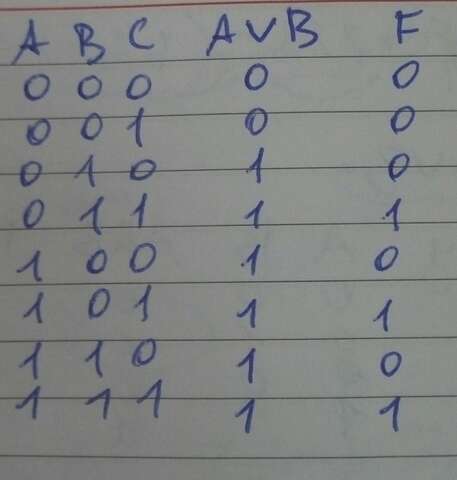 A B C A V B F
0 0 0 0 0
0 0 1 0 0
0 1 0 1 0
0 1 1 1 1
1 0 0 1 0
1 0 1 1 1
1 1 0 1 0
1 1 1 1 1